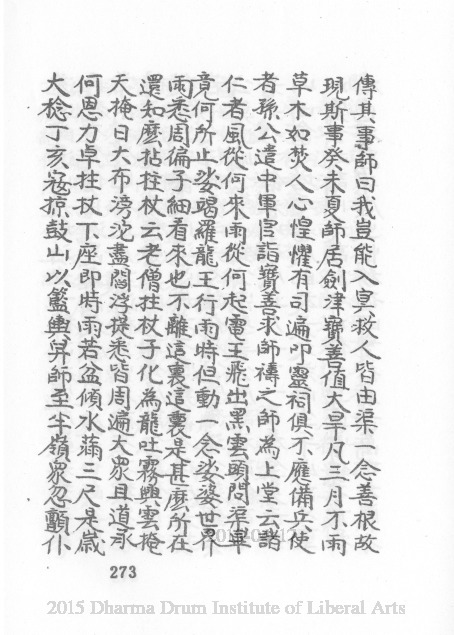 傳其事師曰我豈能入冥救人皆由渠一念善根故
現斯事癸未夏師居劍津寶善值大旱凡三月不雨
草木如焚人心惶懼有司遍叩靈祠俱不應備兵使
者孫公遣中軍官詣寶善求師禱之師為上堂云諸
仁者風從何來雨從何起電王飛出黑雲頭問渠畢
竟何所止娑竭羅龍王行雨時但動一念娑婆世界
雨悉周徧子細看來也不離這裏這裏是甚麼所在
還知麼拈拄杖云老僧拄杖子化為龍吐霧興雲掩
天掩日大布滂沱盡閻浮提悉皆周遍大眾且道承
何恩力卓拄杖下座即時雨若盆傾水蒲三尺是歲
大稔丁亥寇掠鼓山以籃輿舁師至半嶺眾忽顫仆
273
2015 Dharma Drum Institute of Liberal Arts